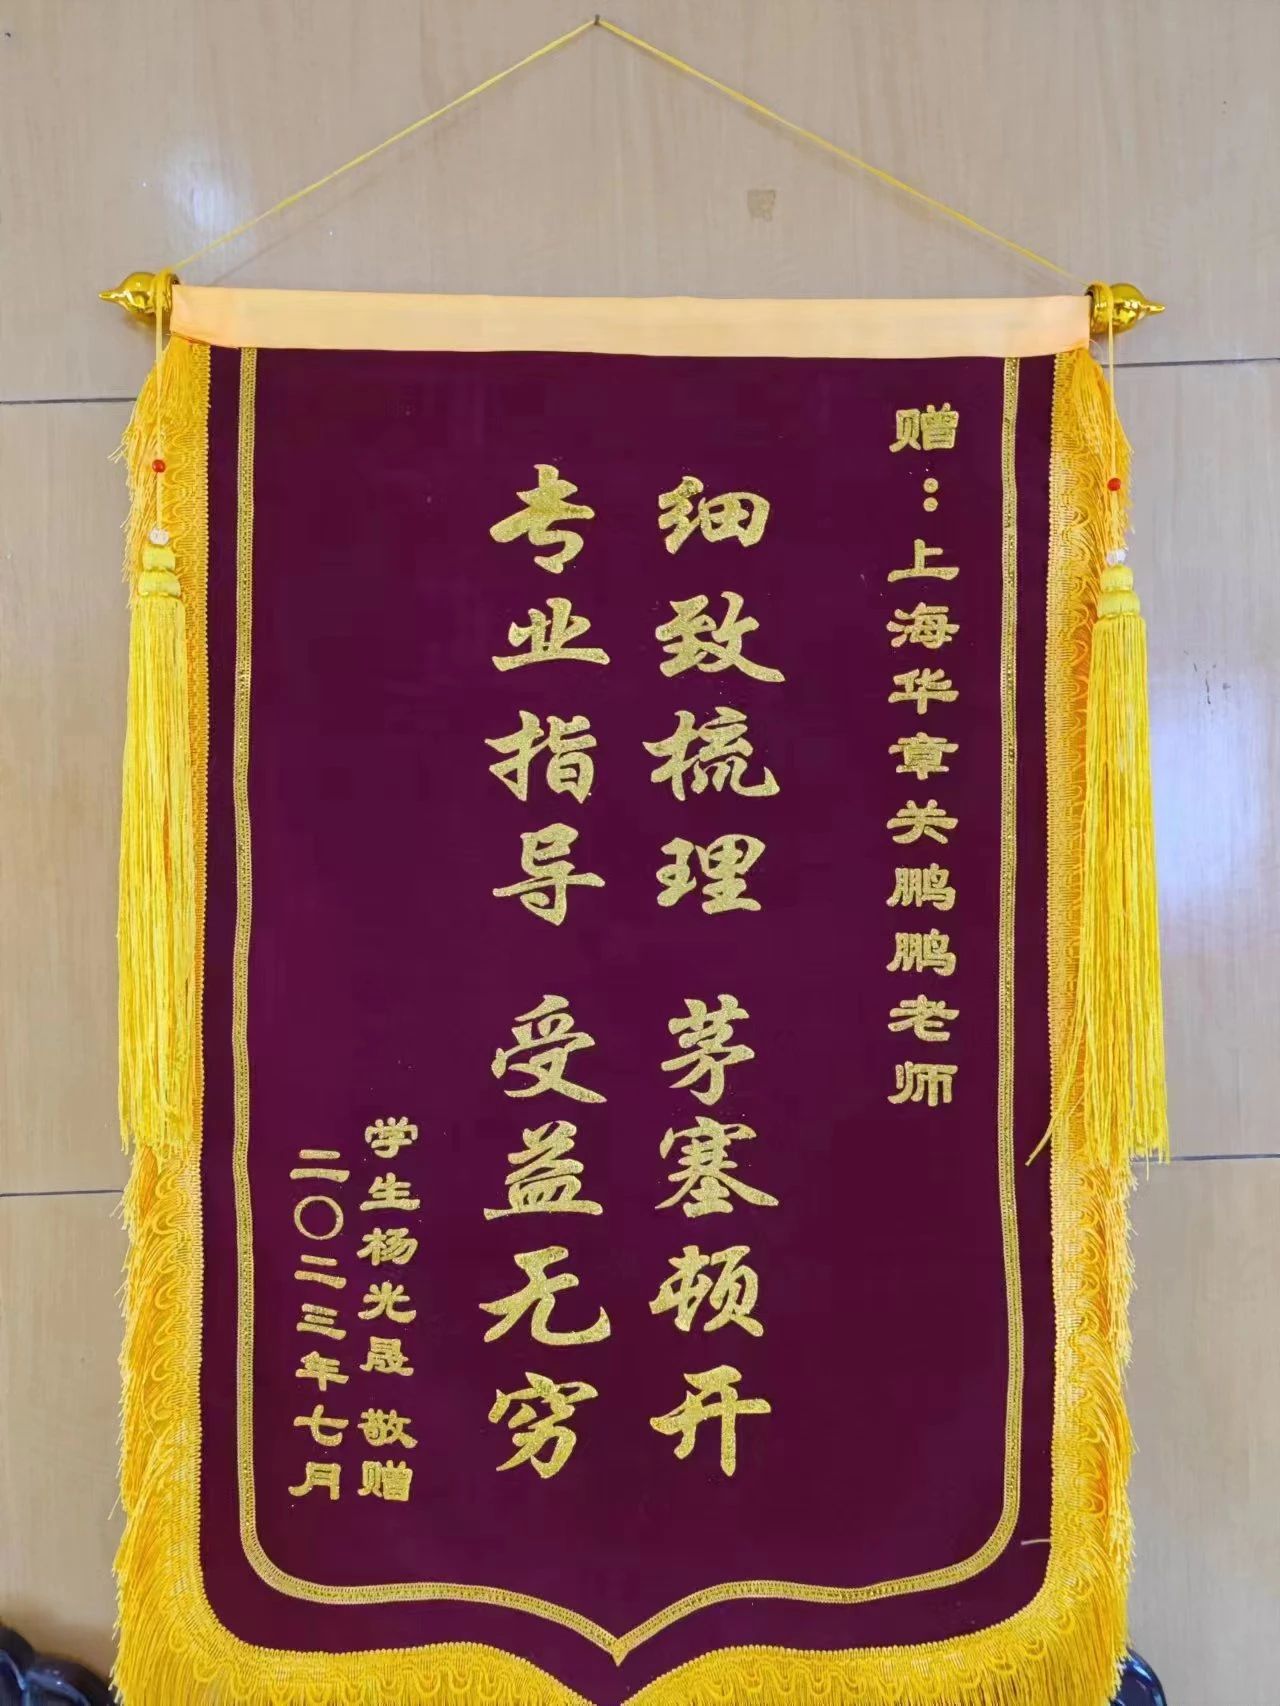 赠：上海华章关鹏鹏老师
细致梳理 茅塞顿开
专业指导 受益无穷
学生杨光晟 敬赠
二〇二三年七月